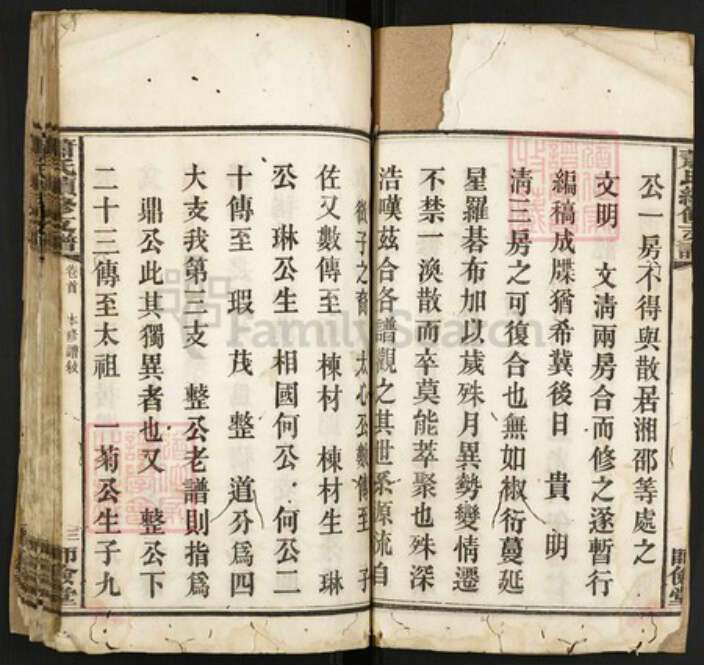 公一房不得與散居湘邵等處之
文明 文清兩房合而修之遂暫行
編稿成牒猶希冀後日 貴 明
清三房之可復合也無如椒衍蔓延
星羅碁布加以歲殊月異勢變情遷
不禁一渙散而卒莫能萃聚也殊深
浩嘆茲合各譜觀之其世系原流自
微子之裔 大心公數傳至 子
佐又數傳至 棟材 棟材生 琳
公 琳公生 相國何公 何公二
十傳至 瑕 茂 整 道 分為四
大支我第三支 整公老譜則指為
鼎公此其獨異者也又 整公下
二十三傳至太祖 一菊公生子九
蕭氏續修支譜
卷首 本修譜敘
三
師儉堂
FamilySearch